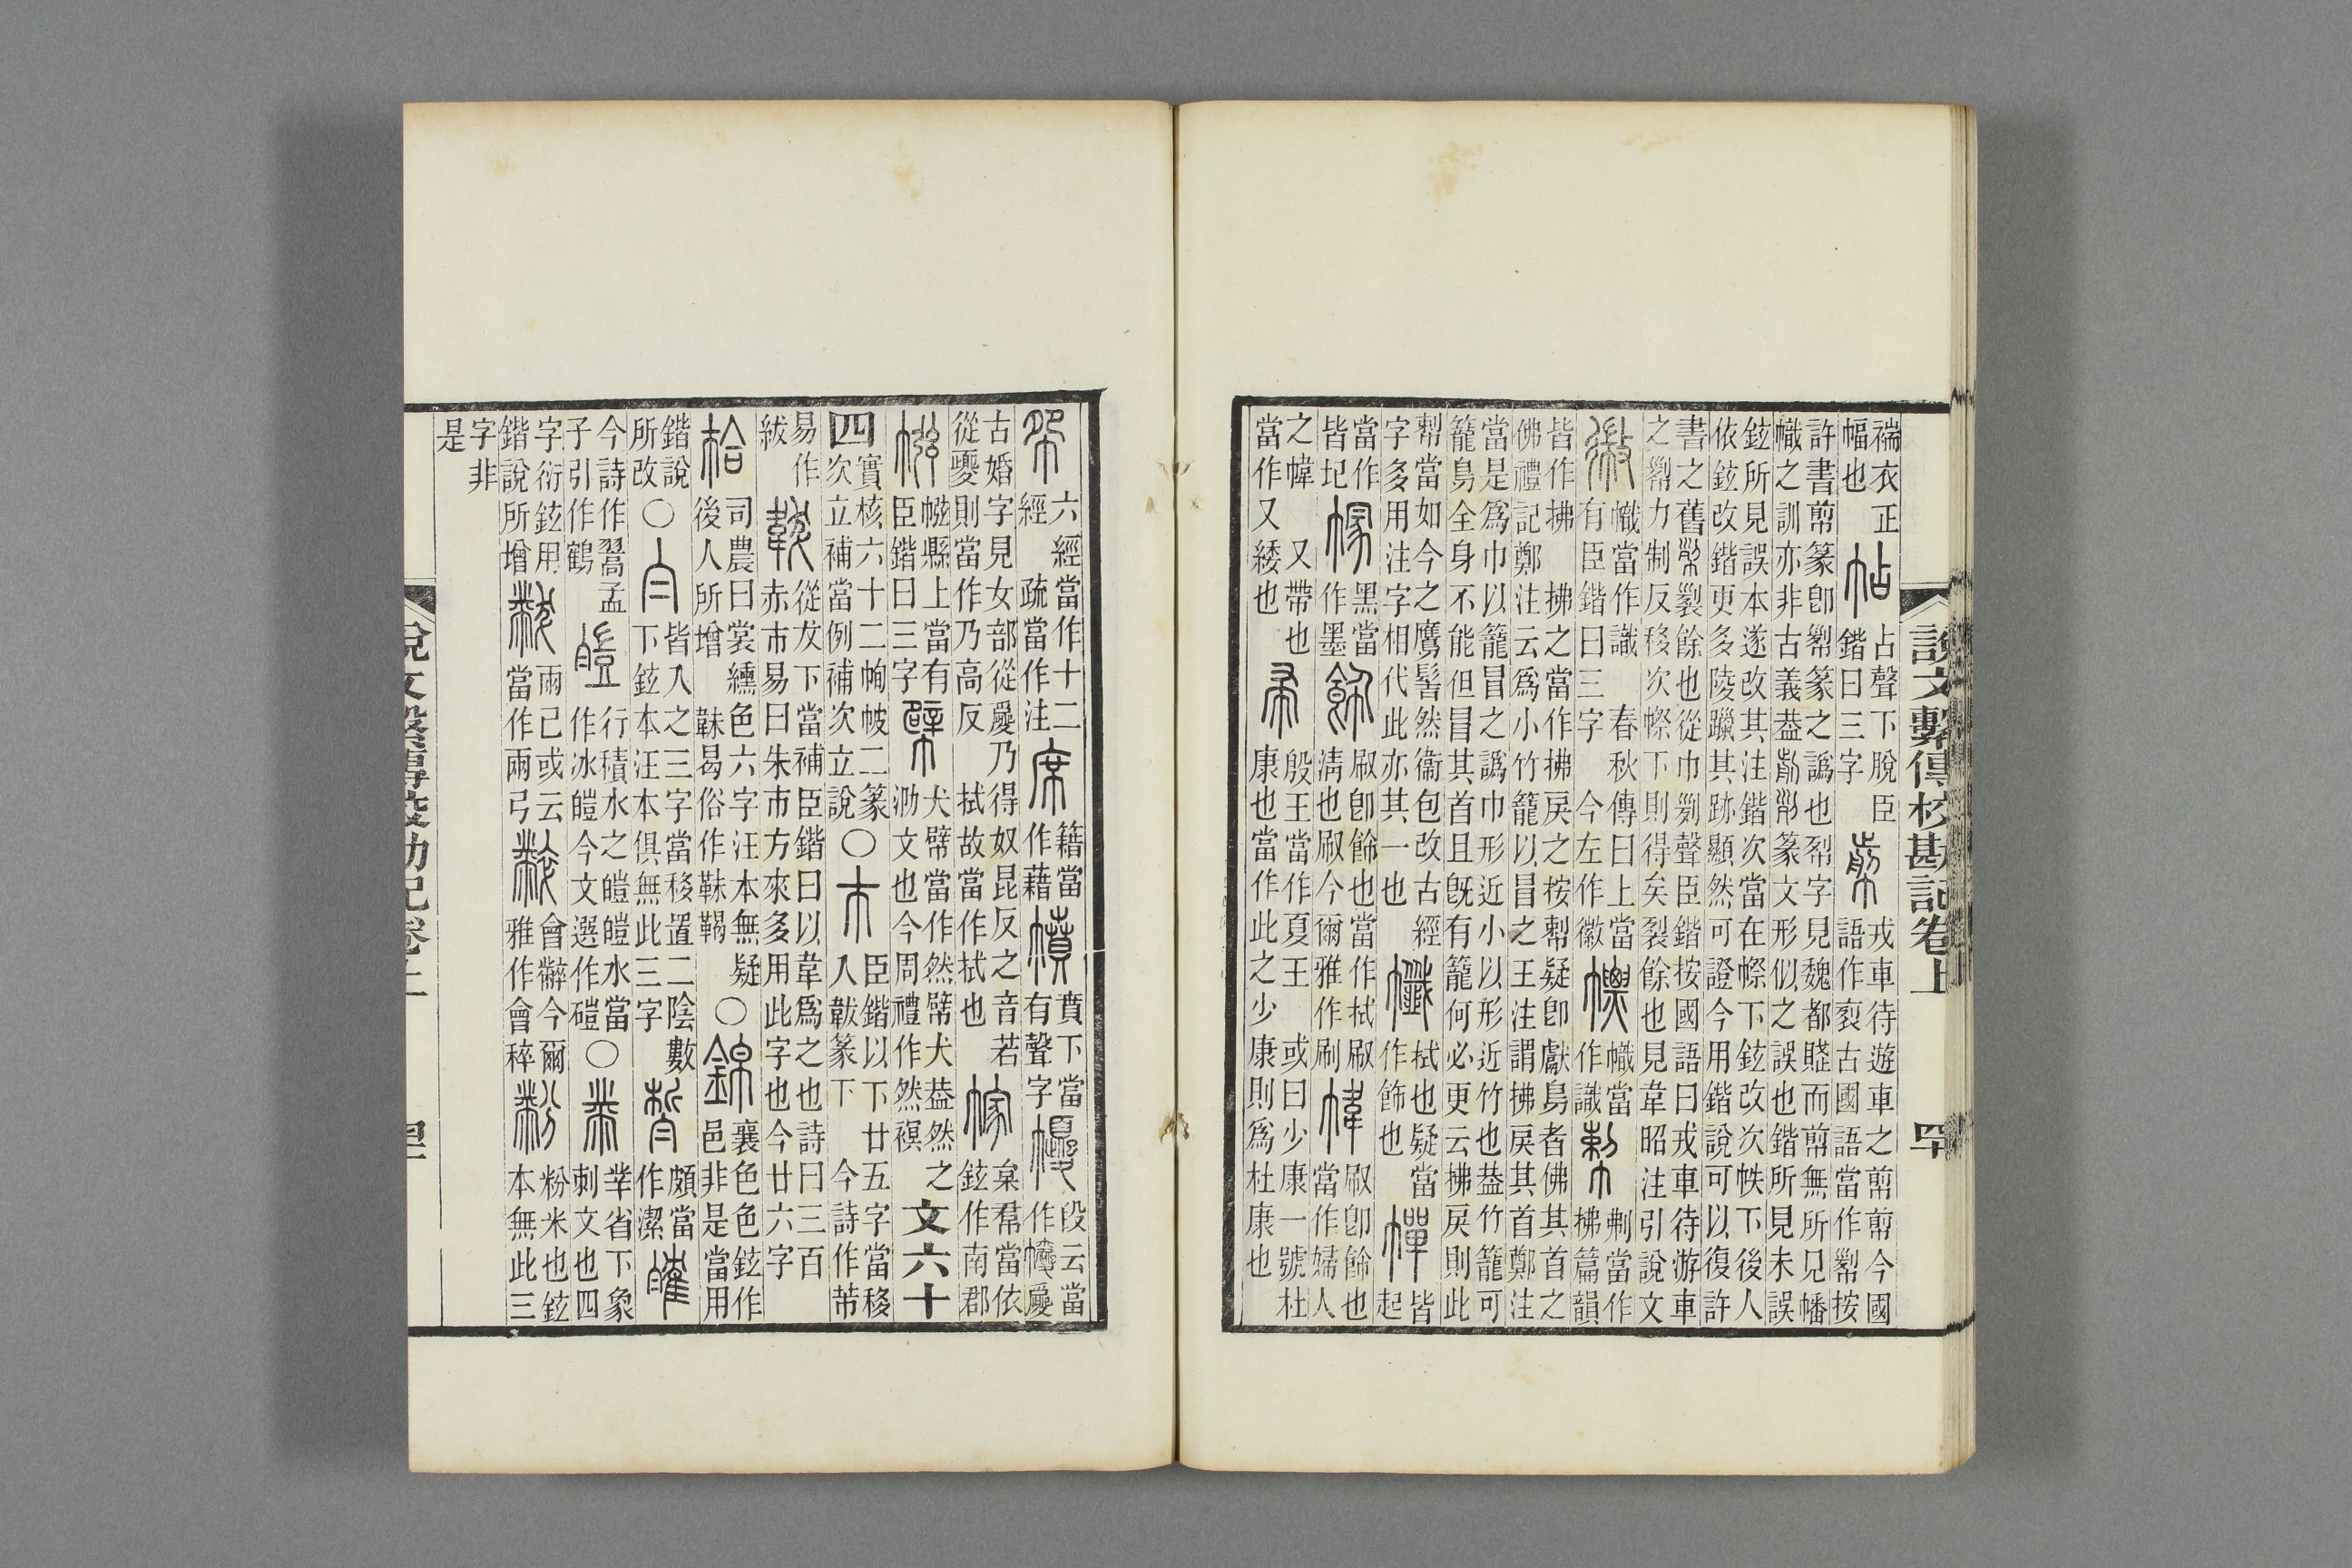 褍衣正
幅也
帖
占聲下脫臣
鍇曰三字
戎車待遊車之剪剪今國
語作裂古國語當作㡜按
許書剪篆卽㡜篆之譌也㓞字見魏都賦而剪無所見幡
幟之訓亦非古義葢篆文形似之誤也鍇所見未誤
鉉所見誤本遂改其注鍇次當在幏下鉉改次帙下後人
依鉉改鍇更多陵躐其跡顯然可證今用鍇說可以復許
書之舊㡜裂餘也從巾㓞聲臣鍇按國語曰戎車待游車
之㡜力制反移次幏下則得矣裂餘也見韋昭注引說文
幑
幟當作識 春秋傳曰上當
有臣鍇曰三字 今左作徽
幖
幟當
作識
當作
梻篇韻
皆作拂 拂之當作拂戾之按疑卽獻鳥者佛其首之
佛禮記鄭注云爲小竹籠以冒之王注謂拂戾其首鄭注
當是爲巾以籠冒之譌巾形近小以形近竹也葢竹籠可
籠鳥全身不能但冒其首且旣有籠何必更云拂戾則此
當如今之鷹髻然衞包改古經
字多用注字相代此亦其一也
㡨
拭也疑當
作飾也
幝
皆
起
當作
皆圮
幏
黑當
作墨
飾
㕞卽飾也當作拭㕞
淸也㕞今爾雅作刷
幃
㕞卽飾也
當作婦人
之幃 又帶也
當作又緌也
帚
殷王當作夏王 或曰少康一號杜
康也當作此之少康則爲杜康也
說文繫傳校勘記卷上 四十
帤
六經當作十二
經 疏當作注
席
籍當
作藉
幩
賁下當
有聲字
㡏
段云當
作㡏㢑
古婚字見女部從㢑乃得奴昆反之音若
從夒則當作乃高反 拭故當作拭也
幏
㮤當依
鉉作南郡
㡜
幭縣上當有
臣鍇曰三字
幦
犬幦當作然幦犬葢然之
泐文也今周禮作然䙪
文六十四
實核六十二㡓帔二篆
次立補當例補次立說
○巿
臣鍇以下廿五字當移
入韍篆下 今詩作芾
易作
紱
韍
從犮下當補臣鍇曰以韋爲之也詩曰三百
赤巿易曰朱巿方來多用此字也今廿六字
韐
司農曰裳纁色六字汪本無疑
後人所增 韎曷俗作韎鞨
○錦
襄色色鉉作
邑非是當用
鍇說
所改
○白
皆入之三字當移置二陰數
下鉉本汪本俱無此三字
晳
頗當
作潔
㿥
今詩作翯孟
子引作鶴
皚
行積水之皚皚水當
作冰皚今文選作磑
○㡀
丵省下象
刺文也四
字衍鉉用
鍇說所增
黻
兩己或云
當作兩弓
䊲
會黼今爾
雅作會稡
黺
粉米也鉉
本無此三
字非
是
說文繫傳校勘記卷上